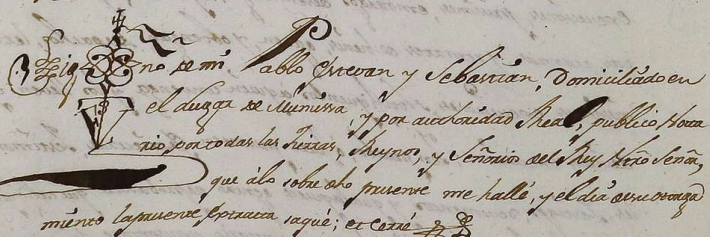 Sig no de mi Pablo Estevan y Sebastian, Domiciliado en
el Lugar de Muniessa, y por authoridad Real, publico Nota
rio, por todas las Tierras, Reynos, y Señorios del Rey Nrõ Señor,
que álo sobre dho presente me hallé, y el dia de su otorga
miento la presente Extracta saqué; et Cerré